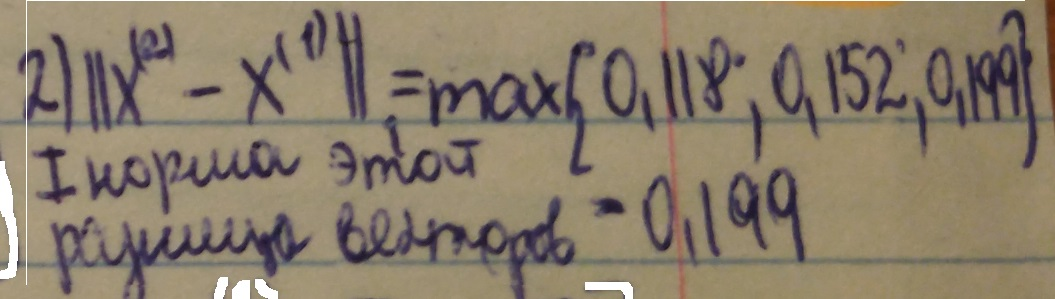 2) ||X⁽²⁾ - X⁽¹⁾||₁ = max{0,118; 0,152; 0,199}
I норма этой
разница векторов - 0,199